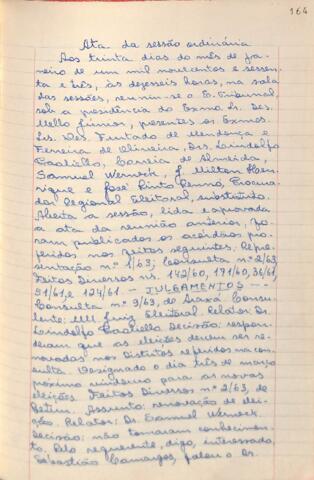 164
Ata da sessão ordinária
Aos trinta dias do mês de ja-
neiro de um mil novecentos e sessen-
ta e três, às dezesseis horas, na sala
das sessões, reuniu-se o E. Tribunal,
sob a presidência do Exmo. Sr. Des.
Mello Júnior, presentes os Exmos.
Srs. Des. Furtado de Mendonça e
Ferreira de Oliveira, Drs. Lindolfo
Paoliello, Correia de Almeida,
Samuel Werneck, J. Milton Hen-
rique e José Pinto Renno, Procura-
dor Regional Eleitoral, substituto.
Aberta a sessão, lida e aprovada
a ata da reunião anterior, fo-
ram publicados os acórdãos pro-
feridos nos feitos seguintes: Repre-
sentação nº 1/63; Consulta nº 2/63,
Feitos Diversos ns. 142/60, 171/60, 36/61,
51/61, e 124/61. - JULGAMENTOS -
Consulta nº 3/63, de Araxá. Consu-
lente: MM. Juiz Eleitoral. Relator: Dr.
Lindolfo Paoliello. Decisão: respon-
deram que as eleições devem ser re-
novadas nos distritos referidos na con-
sulta. Designado o dia três de março
próximo vindouro para as novas
eleições. Feitos Diversos nº 2/63, de
Betim. Assunto: renovação de elei-
ção. Relator: Dr. Samuel Werneck.
Decisão: não tomaram conhecimen-
to. Pelo requerente, digo, interessado,
Sebastião Camargos, falou o Dr.